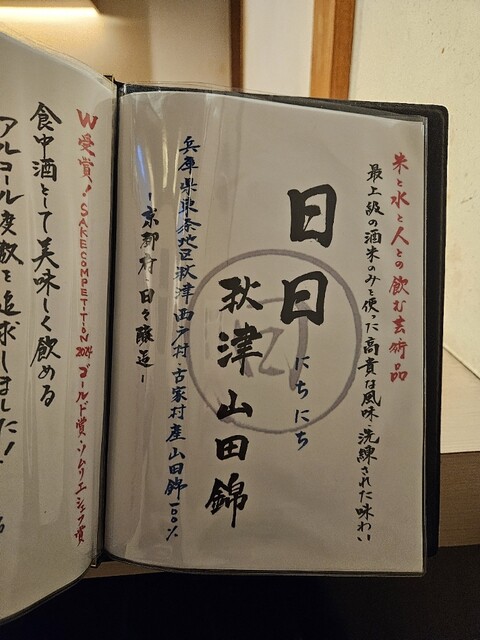 米と水と人との飲む芸術品
最上級の酒米のみを使った高貴な風味・洗練された味わい
日日 にちにち
秋津山田錦
兵庫県東条地区秋津西戸村・古家村産山田錦一〇〇%
-京都府・日々醸造-
W受賞!SAKE COMPETITION 2024 ゴールド賞・ソムリエシェフ賞
食中酒として美味しく飲める
アルコール度数を追求しました!